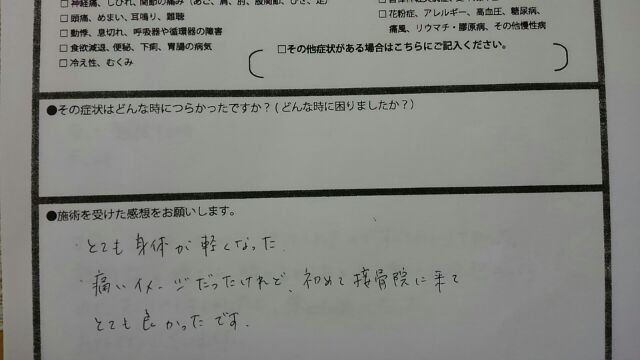 □神経痛、しびれ、関節の痛み（あご、肩、肘、股関節、ひざ、足）
□頭痛、めまい、耳鳴り、難聴
□動悸、息切れ、呼吸器や循環器の障害
□食欲減退、便秘、下痢、胃腸の病気
□冷え性、むくみ
□花粉症、アレルギー、高血圧、糖尿病、
痛風、リウマチ・膠原病、その他慢性病
□その他症状がある場合はこちらにご記入ください。
●その症状はどんな時につらかったですか？(どんな時に困りましたか？)
●施術を受けた感想をお願いします。
・とても身体が軽くなった.
・痛いイメージだったけれど、初めて接骨院に来て
とても良かったです.